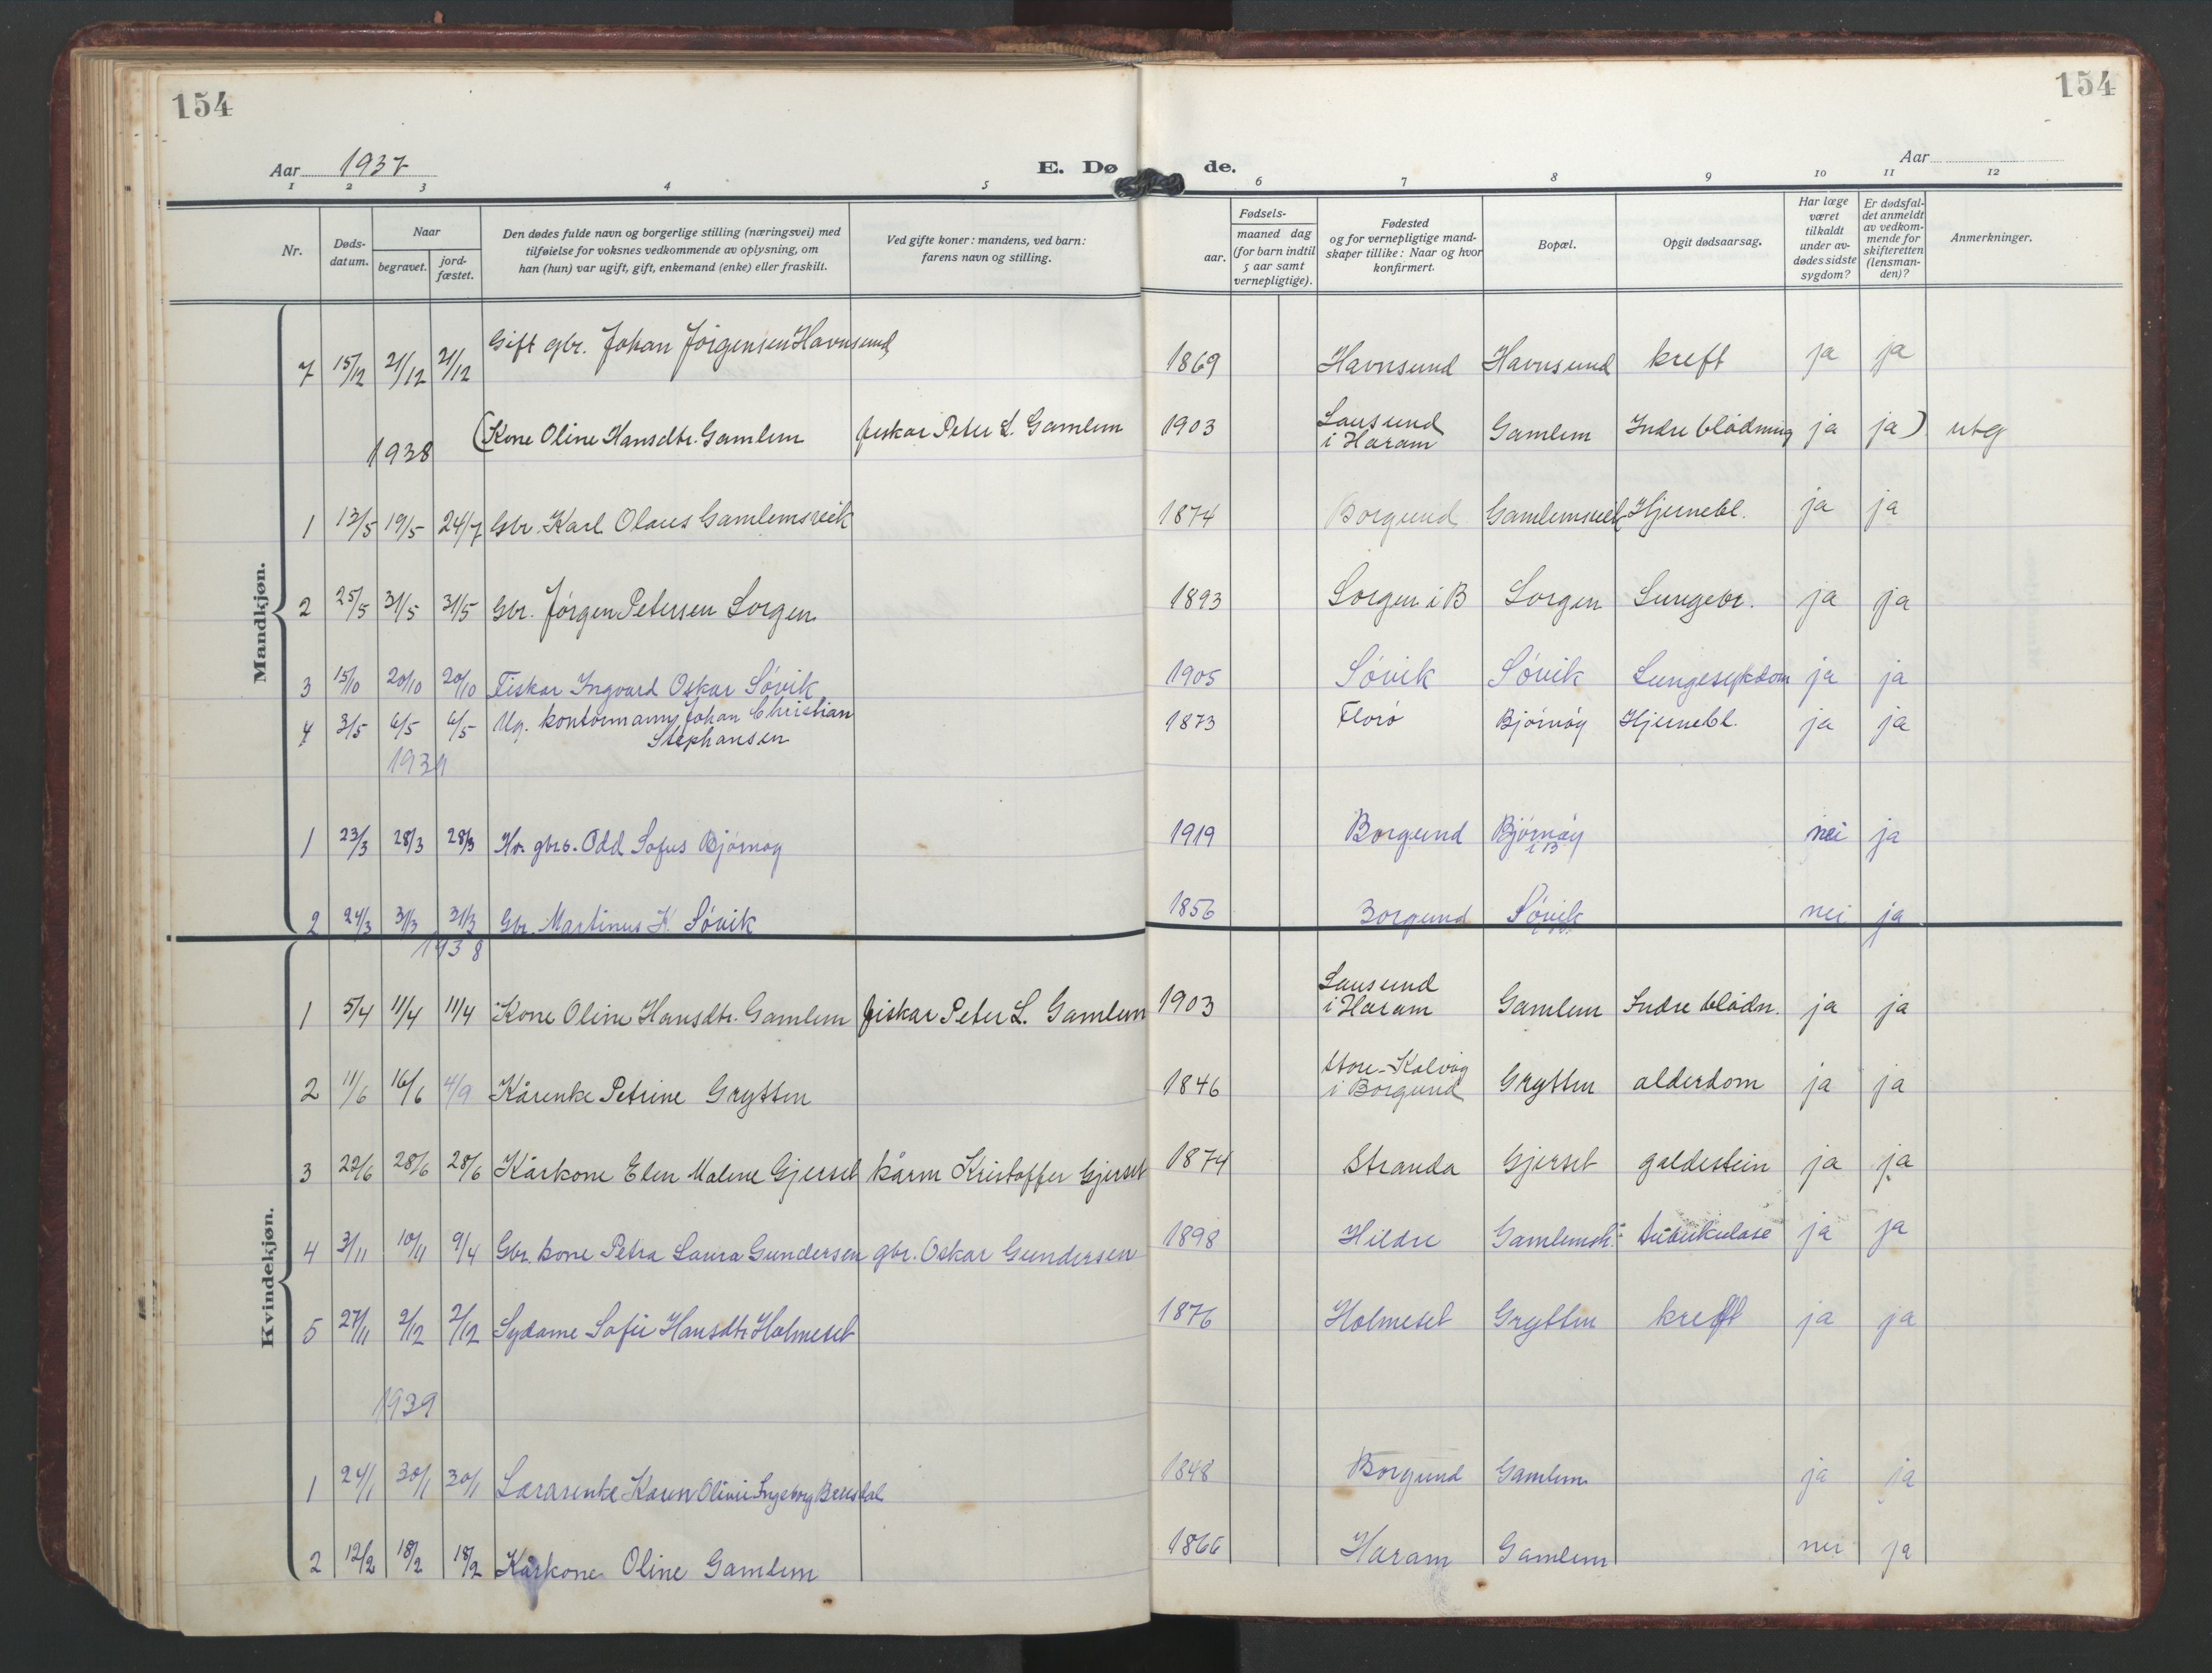 154
154
Aar 1937
E. Dø de.
Aar
1 2 3 4 5 6 7 8 9 10 11 12
Nr.
Døds-
datum.
Naar
begravet.
jord-
fæstet.
Den dødes fulde navn og borgerlige stilling (næringsvei) med
tilføielse for voksnes vedkommende av oplysning, om
han (hun) var ugift, gift, enkemand (enke) eller fraskilt.
Ved gifte koner: mandens, ved barn:
farens navn og stilling.
Fødsels-
aar.
maaned dag
(for barn indtil
5 aar samt
vernepligtige).
Fødested
og for vernepligtige mand-
skaper tillike: Naar og hvor
konfirmert.
Bopæl.
Opgit dødsaarsag.
Har læge
været
tilkaldt
under av-
dødes sidste
sygdom?
Er dødsfal-
det anmeldt
av vedkom-
mende for
skifteretten
(lensman-
den)?
Anmerkninger.
Mandkjøn.
7 15/12 21/12 21/12 Gift gbr. Johan Jørgensen Havnsund 1869 Havnsund Havnsund kreft ja ja
(Kone Oline Hansdtr. Gamlem fiskar Peter L. Gamlem 1903 Lausund
i Haram Gamlem Indre blødning ja ja) utg
1938
1 13/5 19/5 24/7 Gbr. Karl Olaus Gamlemsveik 1874 Borgund Gamlemsveik Hjernebl. ja ja
2 25/5 31/5 31/5 Gbr. Jørgen Petersen Lorgen 1893 Lorgen i B Lorgen Lungebr. ja ja
3 15/10 20/10 20/10 Fiskar Ingvard Oskar Søvik 1905 Søvik Søvik Lungesykdom ja ja
4 3/5 6/5 6/5 Ug. kontormann Johan Christian
Stephansen 1873 Florø Bjørnøy Hjernebl. ja ja
1939
1 23/3 28/3 28/3 Hv. gbrs. Odd Sofus Bjørnøy 1919 Borgund Bjørnøy
i B nei ja
2 24/3 31/3 31/3 Gbr. Martinus K. Søvik 1856 Borgund Søvik nei ja
Kvindekjøn.
1938
1 5/4 11/4 11/4 Kone Oline Hansdtr. Gamlem fiskar Peter L. Gamlem 1903 Lausund
i Haram Gamlem Indre blødn. ja ja
2 11/6 16/6 4/9 Kårenke Petrine Grytten 1846 Store-Kalvøy
i Borgund Grytten alderdom ja ja
3 22/6 28/6 28/6 Kårkone Elen Malene Gjerset kårm Kristoffer Gjerset 1874 Stranda Gjerset galdestein ja ja
4 3/11 10/11 9/4 Gbr. kone Petra Laura Gundersen gbr. Oskar Gundersen 1898 Hildre ja ja
5 27/11 2/12 2/12 Sydame Sofie Hansdtr Holmeset 1876 Holmeset Grytten kreft ja ja
1939
1 24/1 30/1 30/1 Lærarenke Karen Olivie Ingeborg 1848 Borgund Gamlem ja ja
2 12/2 18/2 18/2 Kårkone Oline Gamlem 1866 Haram Gamlem nei ja